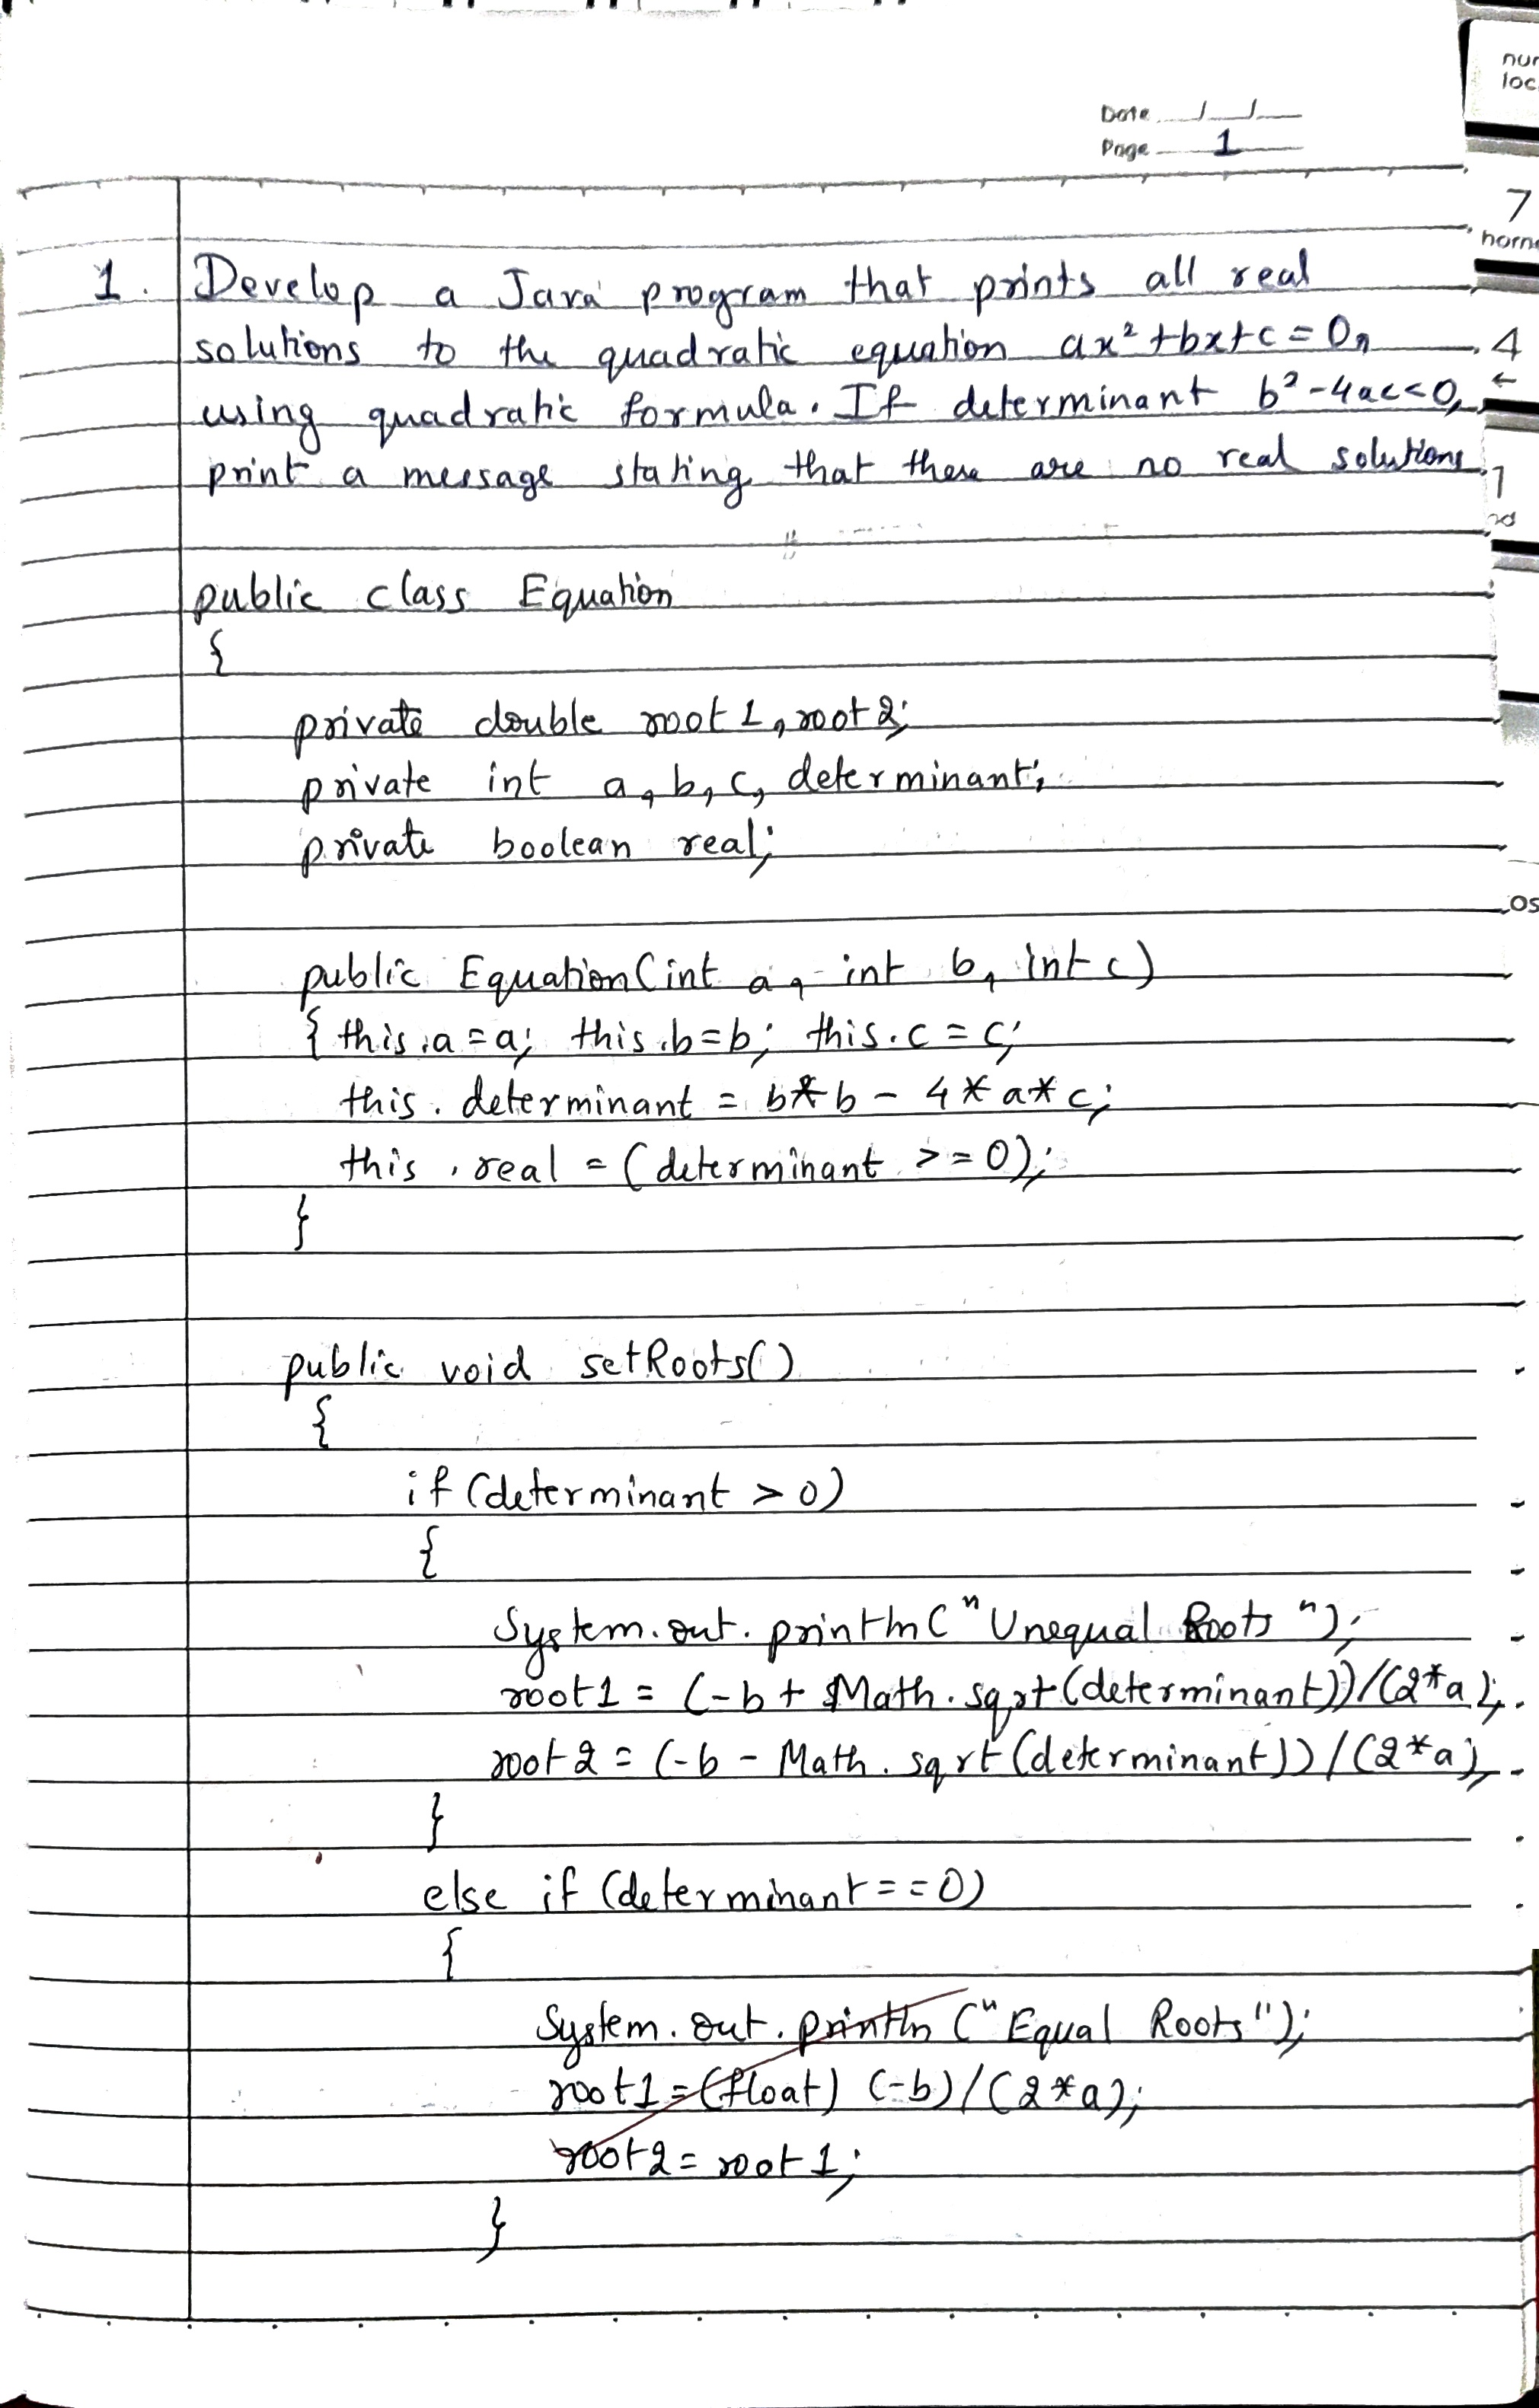 Date
Page 1
1. Develop a Java program that prints all real
solutions to the quadratic equation ax²+bx+c=0,
using quadratic formula. If determinant b²-4ac<0,
print a message stating that there are no real solutions.
public class Equation
{
private double root1, root2;
private int a, b, c, determinant;
private boolean real;
public Equation(int a, int b, int c)
{ this.a=a; this.b=b; this.c=c;
this.determinant = b*b - 4*a*c;
this.real = (determinant >=0);
}
public void setRoots()
{
if (determinant > 0)
{
System.out.println("Unequal Roots");
root1 = (-b + Math.sqrt(determinant))/(2*a);
root2 = (-b - Math.sqrt(determinant))/(2*a);
}
else if (determinant==0)
{
System.out.println("Equal Roots");
root1=(float) (-b)/(2*a);
root2 = root1;
}
7
4
←
1